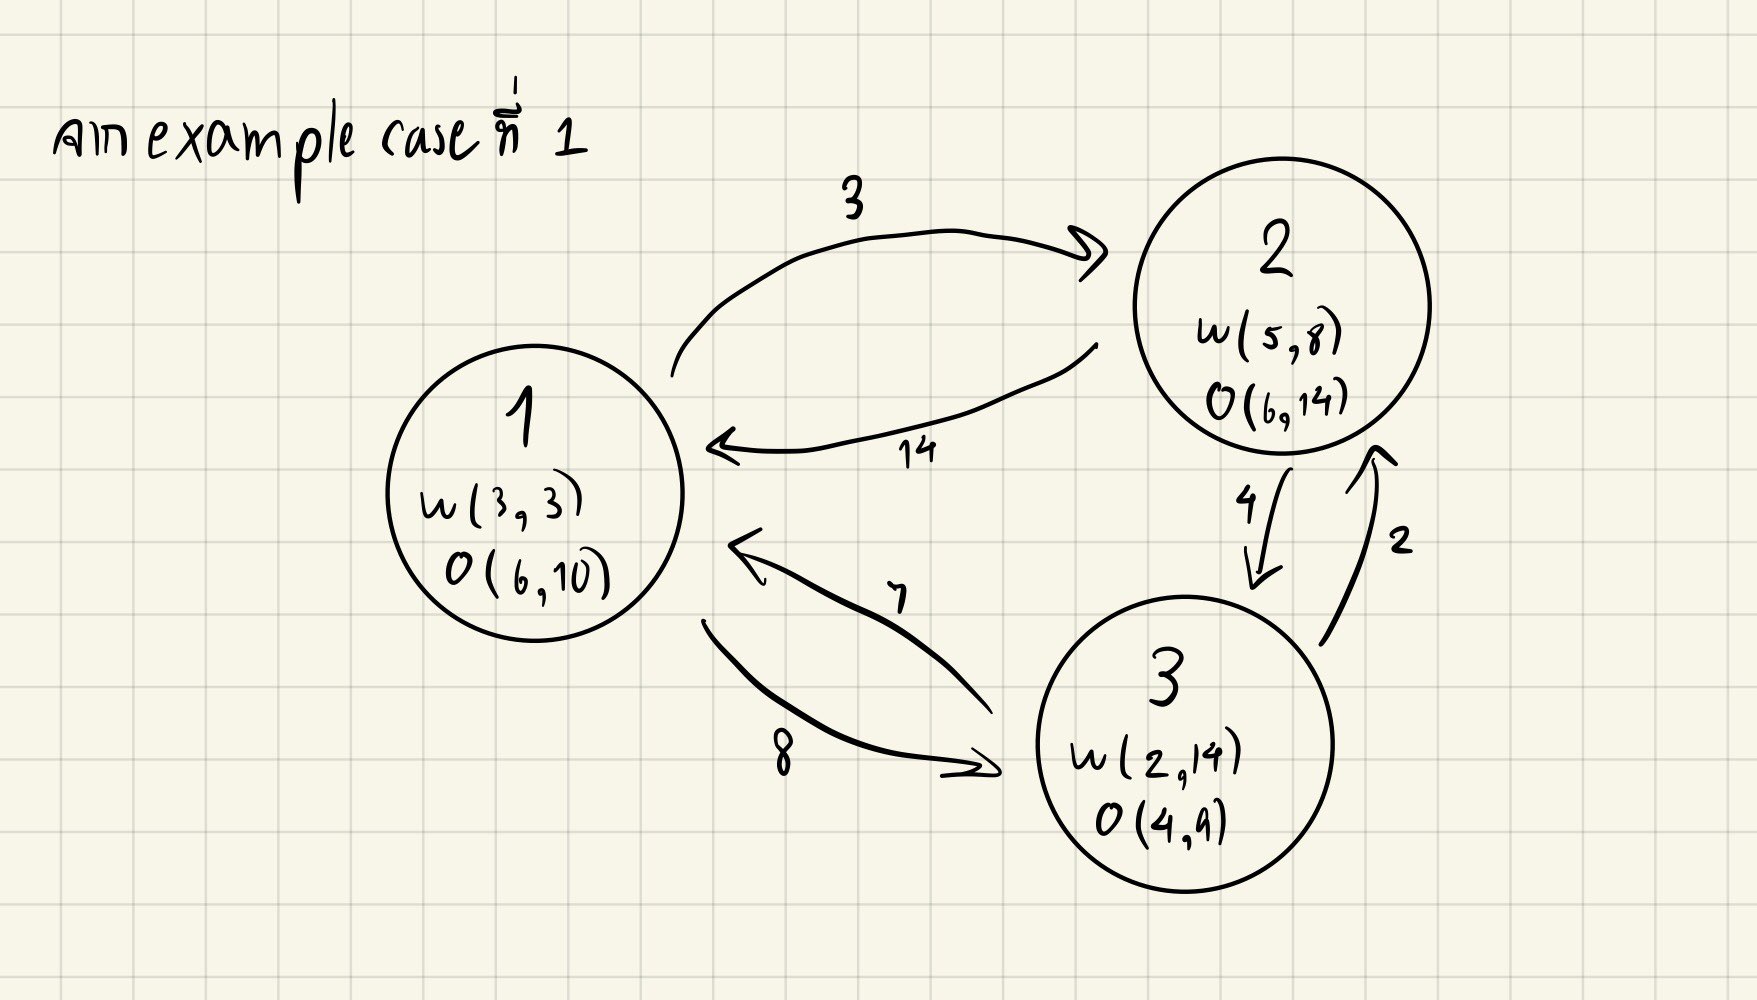 an example case ที่ 1
3
2
w(5,8)
O(6,14)
14
1
w(3,3)
O(6,10)
4
2
7
8
3
w(2,14)
O(4,9)